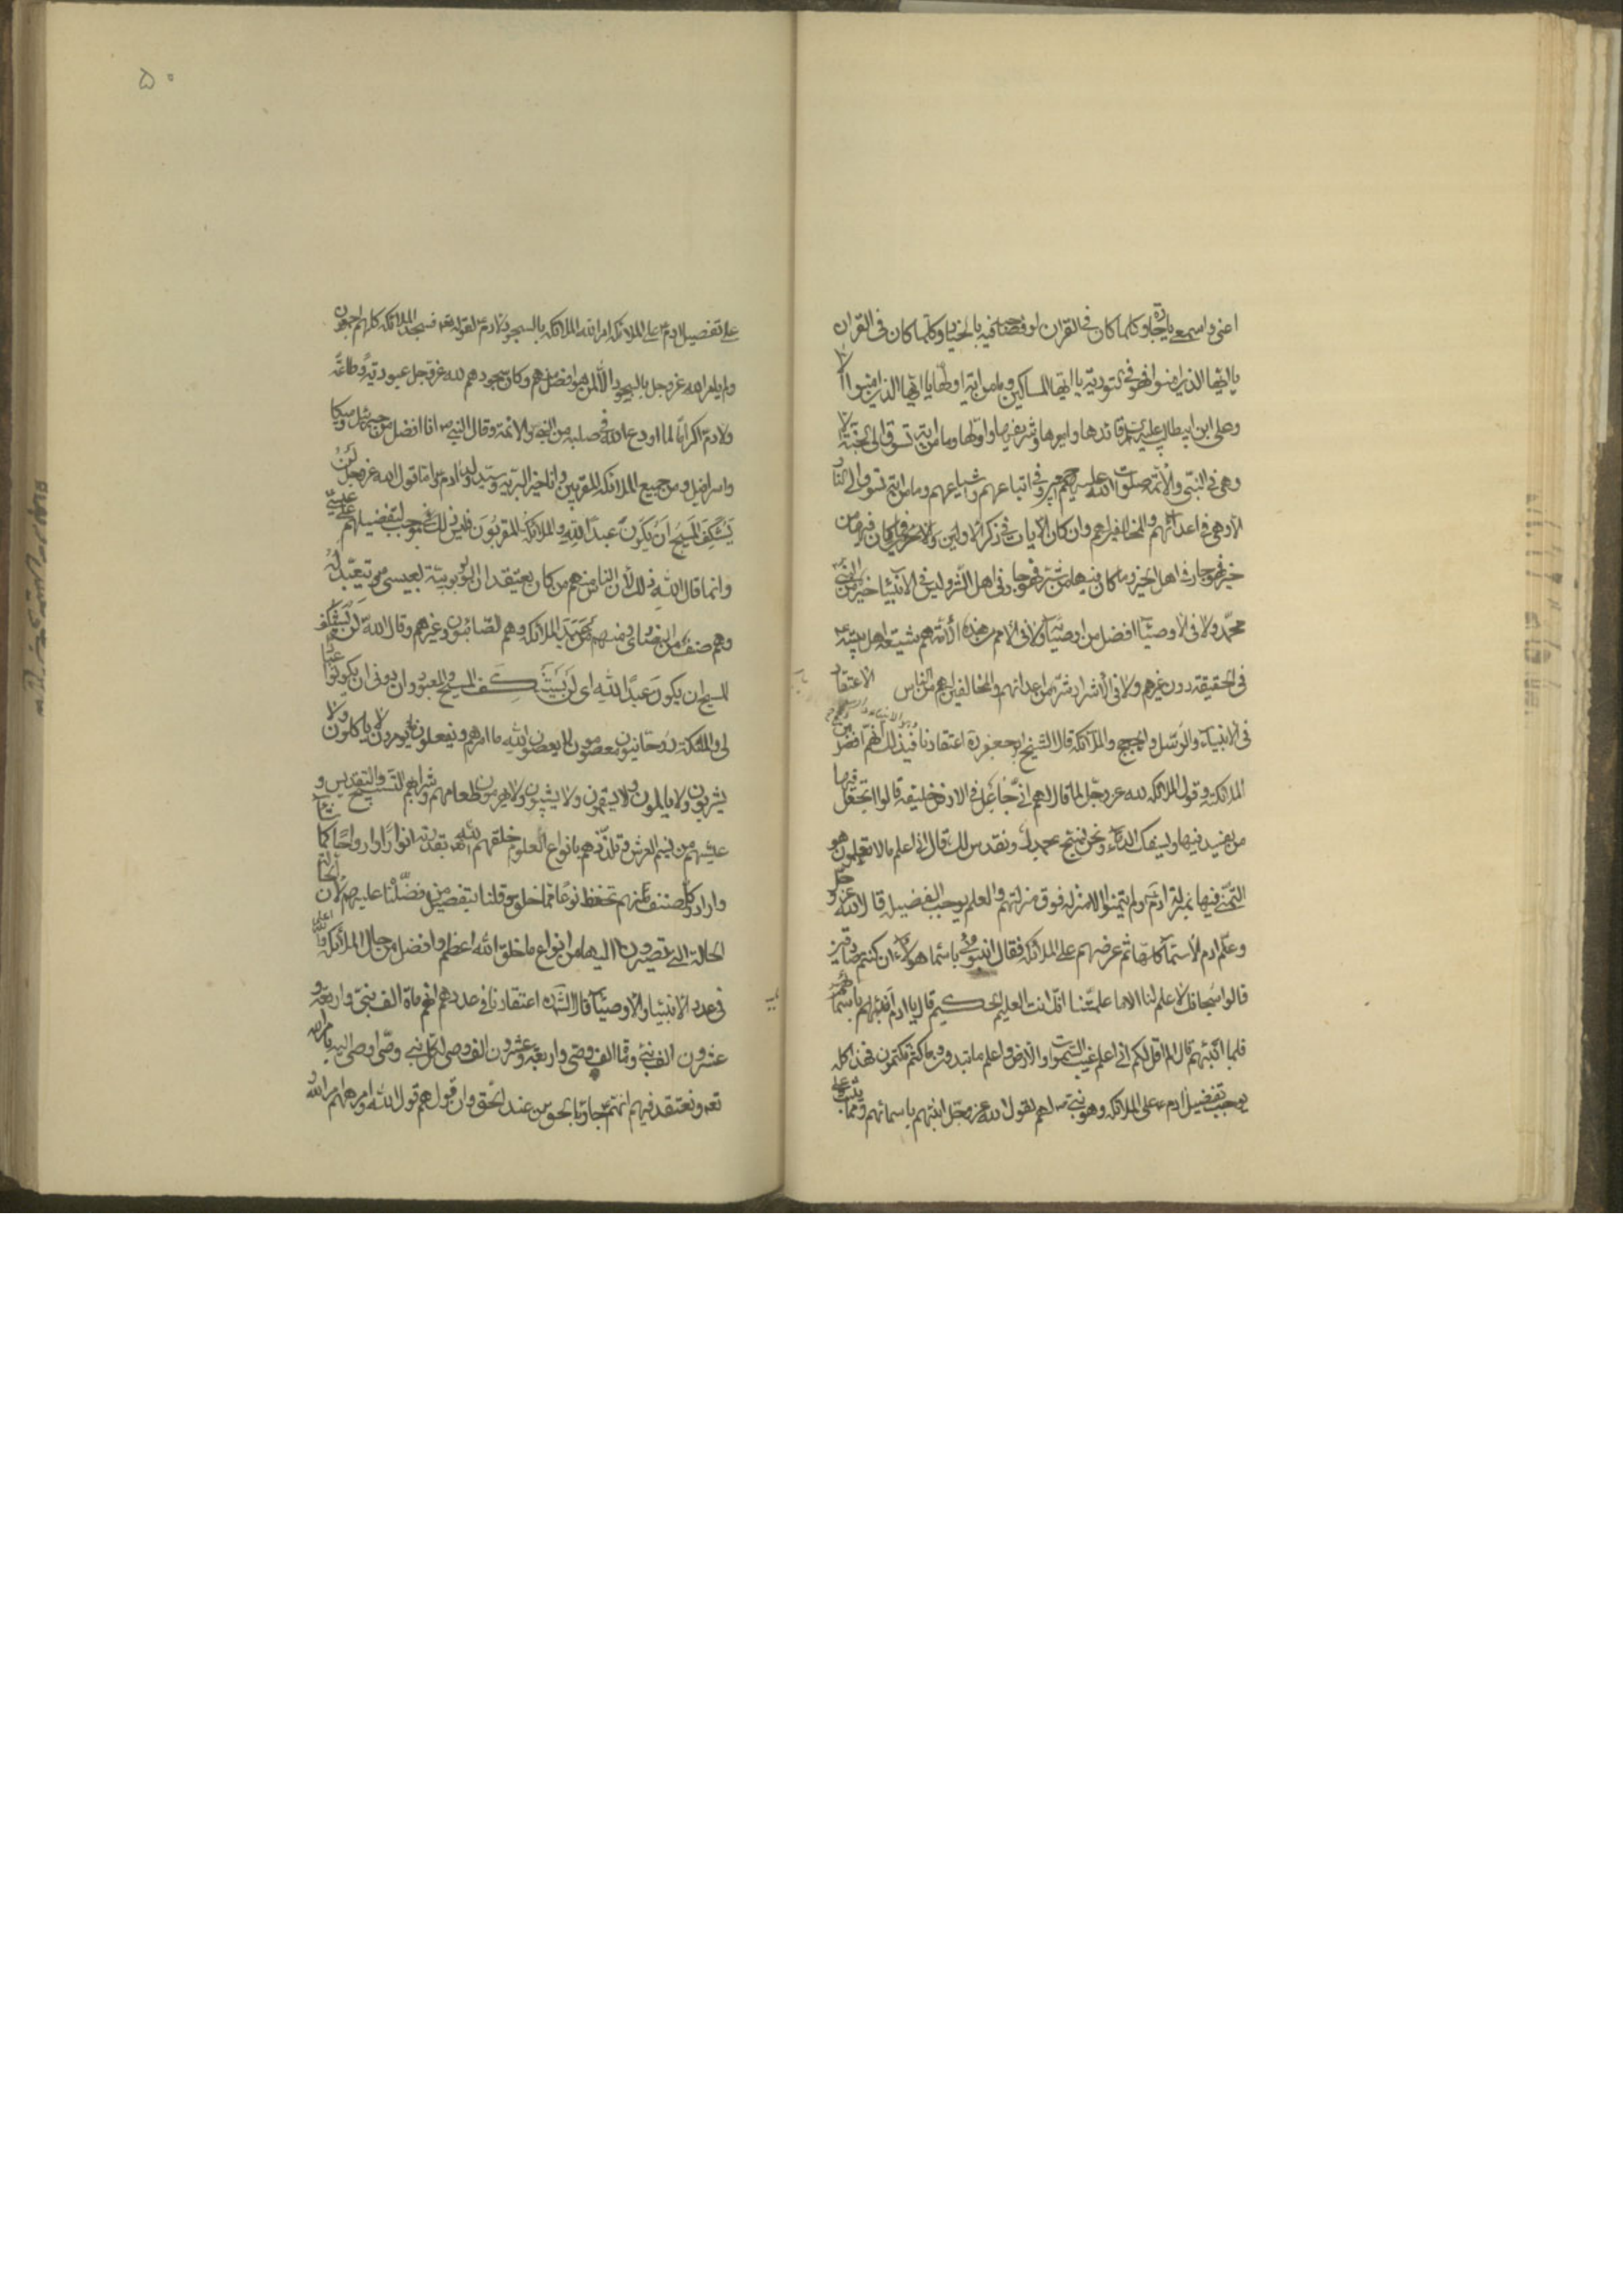 اعنی و اسمعی یا جاره وکلما کان فی القران او فصاحبه فیه بالخیار وکلما کان فی القران
یا ایها الذین امنوا فهو فی التوریة یا ایها المساکین وما من ایة اولها یا ایها الذین امنوا الا
وعلی ابن ابیطالب علیه قائدها وامیرها وشریفها واولها وما من ایة تسوق الی الجنة الا
وهی فی النبی والائمة صلوت الله علیهم وفی اتباعهم واشیاعهم وما من ایة تسوق الی النار
الا وهی فی اعدائهم والمخالفین لهم وان کان الایات فی ذکر الاولین والاخرین فما کان فیها من
خیر فهو جار فی اهل الخیر وما کان فیها من شر فهو جار فی اهل الشر ولیس فی الانبیاء خیر من النبی
محمد ولا فی الاوصیاء افضل من اوصیائه ولا فی الامم من هذه الامة هم شیعة اهل بیته
فی الحقیقة دون غیرهم ولا فی الاشرار شر من اعدائهم والمخالفین لهم من الناس الاعتقاد
فی الانبیاء والرسل والحجج والملائکة قال الشیخ ابو جعفر ره اعتقادنا فی ذلک انهم افضل من
الملائکة وقول الملائکة لله عز وجل لما قال لهم انی جاعل فی الارض خلیفة قالوا اتجعل فیها
من یفسد فیها ویسفک الدماء ونحن نسبح بحمدک ونقدس لک قال انی اعلم ما لا تعلمون هو
التمنی فیها لمنزلة ادم ولم یتمنوا الا منزلة فوق منزلتهم والعلم یوجب الفضیلة قال الله عز وجل
وعلم ادم الاسماء کلها ثم عرضهم علی الملائکة فقال انبئونی باسماء هؤلاء ان کنتم صادقین
قالوا سبحانک لا علم لنا الا ما علمتنا انک انت العلیم الحکیم قال یا ادم انبئهم باسمائهم
فلما انبئهم قال الم اقل لکم انی اعلم غیب السموات والارض واعلم ما تبدون وما کنتم تکتمون فهذا کله
یوجب تفضیل ادم علی الملائکة وهو نبی لهم لقول الله عز وجل انبئهم باسمائهم ومما یثبت
۵۰
علی تفضیل ادم علی الملائکة امر الله الملائکة بالسجود لادم لقوله تعه فسجد الملائکة کلهم اجمعون
ولم یامر الله عز وجل بالسجود الا لمن هو افضل منهم وکان سجودهم لله عز وجل عبودیة وطاعة
ولادم اکراما لما اودع الله فی صلبه من النبی والائمة وقال النبی ص انا افضل من جبرئیل ومیکا
واسرافیل ومن جمیع الملائکة المقربین وانا خیر البریة وسید ولد ادم واما قول الله عز وجل لن
یستنکف المسیح ان یکون عبدا لله ولا الملائکة المقربون فلیس ذلک بموجب لتفضیلهم علی عیسی
وانما قال الله ذلک لان الناس منهم من کان یعتقد الربوبیة لعیسی ویتعبد له
وهم صنف من النصاری ومنهم من عبد الملائکة وهم الصابئون وغیرهم وقال الله لن یستنکف
المسیح ان یکون عبدا لله ای لن یستنکف المسیح والمعبودون دونی ان یکونوا عبیدا
لی والملئکة روحانیون معصومون لا یعصون الله ما امرهم ویفعلون ما یومرون لا یاکلون ولا
یشربون ولا یالمون ولا یسقمون ولا یشیبون ولا یهرمون طعامهم وشرابهم التسبیح والتقدیس و
عیشهم من نسیم العرش وتلذذهم بانواع العلوم خلقهم الله بقدرته انوارا وارواحا کما شاء
واراد وکل صنف منهم تحفظ نوعا مما خلق وقلنا بتفضیل من فضلنا علیهم لان الحالة
الحالة التی تصیرون الیها من انواع ما خلق الله اعظم وافضل من حال الملائکة والله اعلم
فی عدد الانبیاء والاوصیاء قال الشیخ ره اعتقادنا فی عددهم انهم ماة الف نبی واربعة و
عشرون الف نبی وماة الف وصی واربعة وعشرون الف وصی لکل نبی وصی اوصی الیه بامر الله
تعه ونعتقد فیهم انهم جاؤا بالحق من عند الحق وان قولهم قول الله وامرهم امر الله